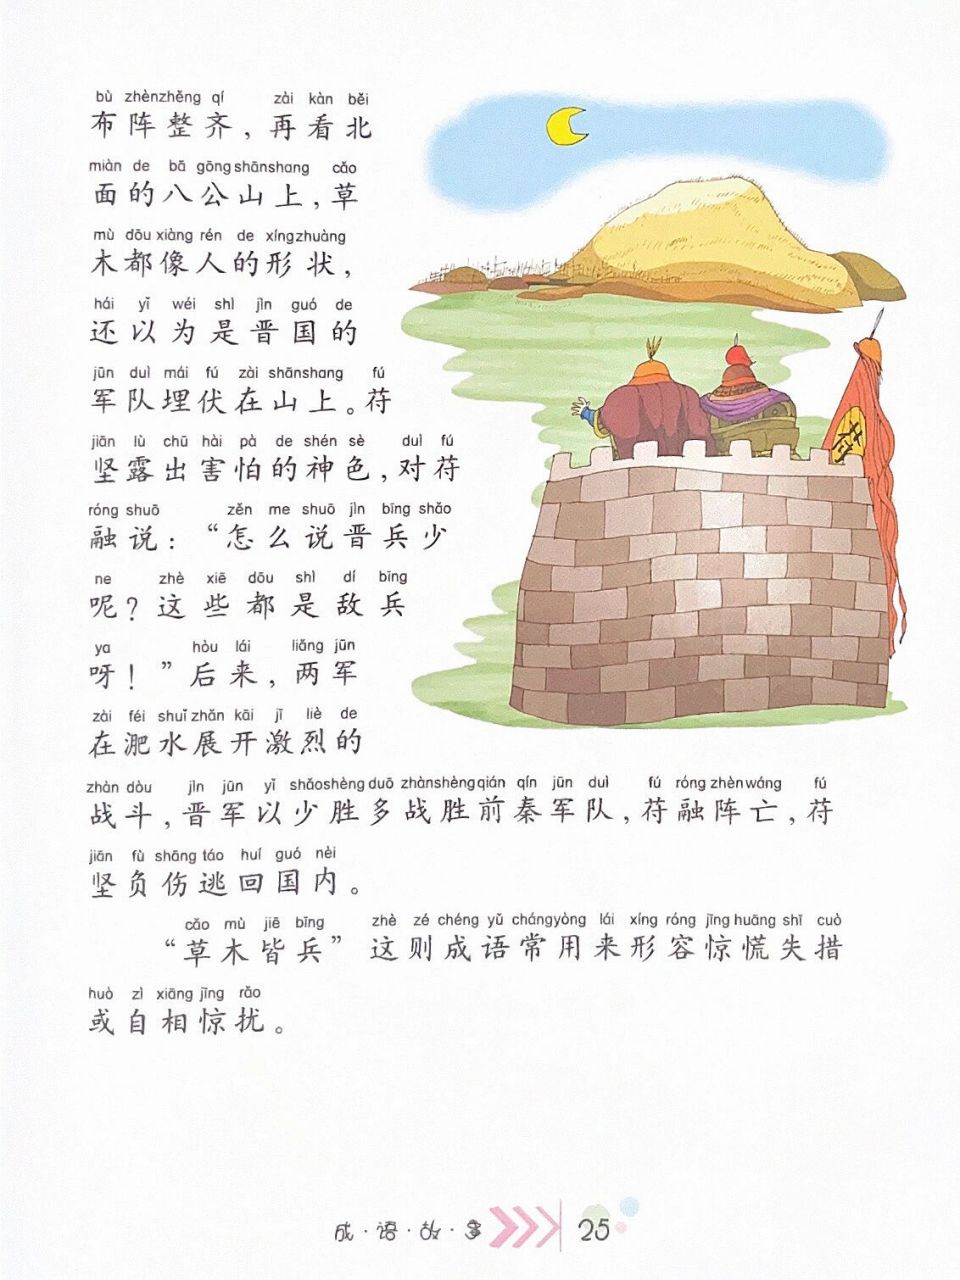 bù zhènzhěng qí zài kàn běi
布阵整齐，再看北
miàn de bā gōng shānshang cǎo
面的八公山上，草
mù dōu xiàng rén de xíngzhuàng
木都像人的形状，
hái yǐ wéi shì jìn guó de
还以为是晋国的
jūn duì mái fú zài shānshang fú
军队埋伏在山上。苻
jiān lù chū hài pà de shén sè duì fú
坚露出害怕的神色，对苻
róng shuō zěn me shuō jìn bīng shǎo
融说：“怎么说晋兵少
ne zhè xiē dōu shì dí bīng
呢？这些都是敌兵
ya hòu lái liǎng jūn
呀！”后来，两军
zài féi shuǐ zhǎn kāi jī liè de
在淝水展开激烈的
zhàn dòu jìn jūn yǐ shǎoshèng duō zhànshèng qián qín jūn duì fú róng zhèn wáng fú
战斗，晋军以少胜多战胜前秦军队，苻融阵亡，苻
jiān fù shāng táo huí guó nèi
坚负伤逃回国内。
cǎo mù jiē bīng zhè zé chéng yǔ chángyòng lái xíng róng jīng huāng shī cuò
“草木皆兵”这则成语常用来形容惊慌失措
huò zì xiāng jīng rǎo
或自相惊扰。
成·语·故·事 25